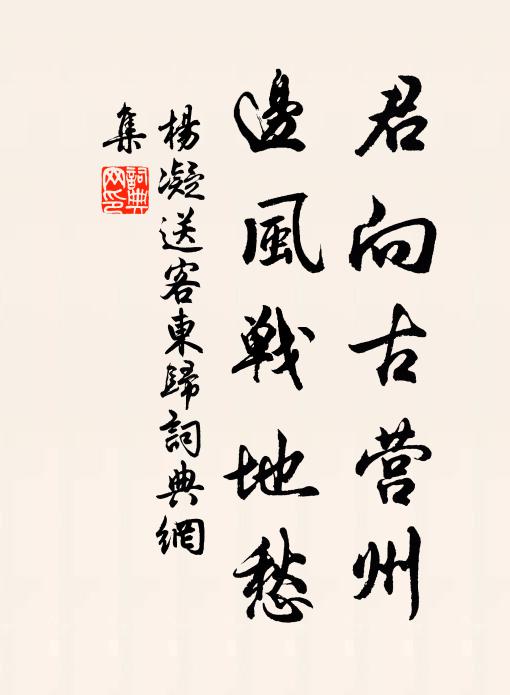 君向古营州
邊風戦地愁
楊凝送客東歸詞典網
集
詞典
网印